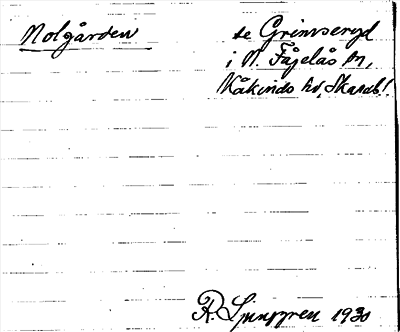 Nolgården
se Grimseryd
i N. Fågelås sn,
Kåkinds hd, Skarab.l.
R. Ljunggren 1930